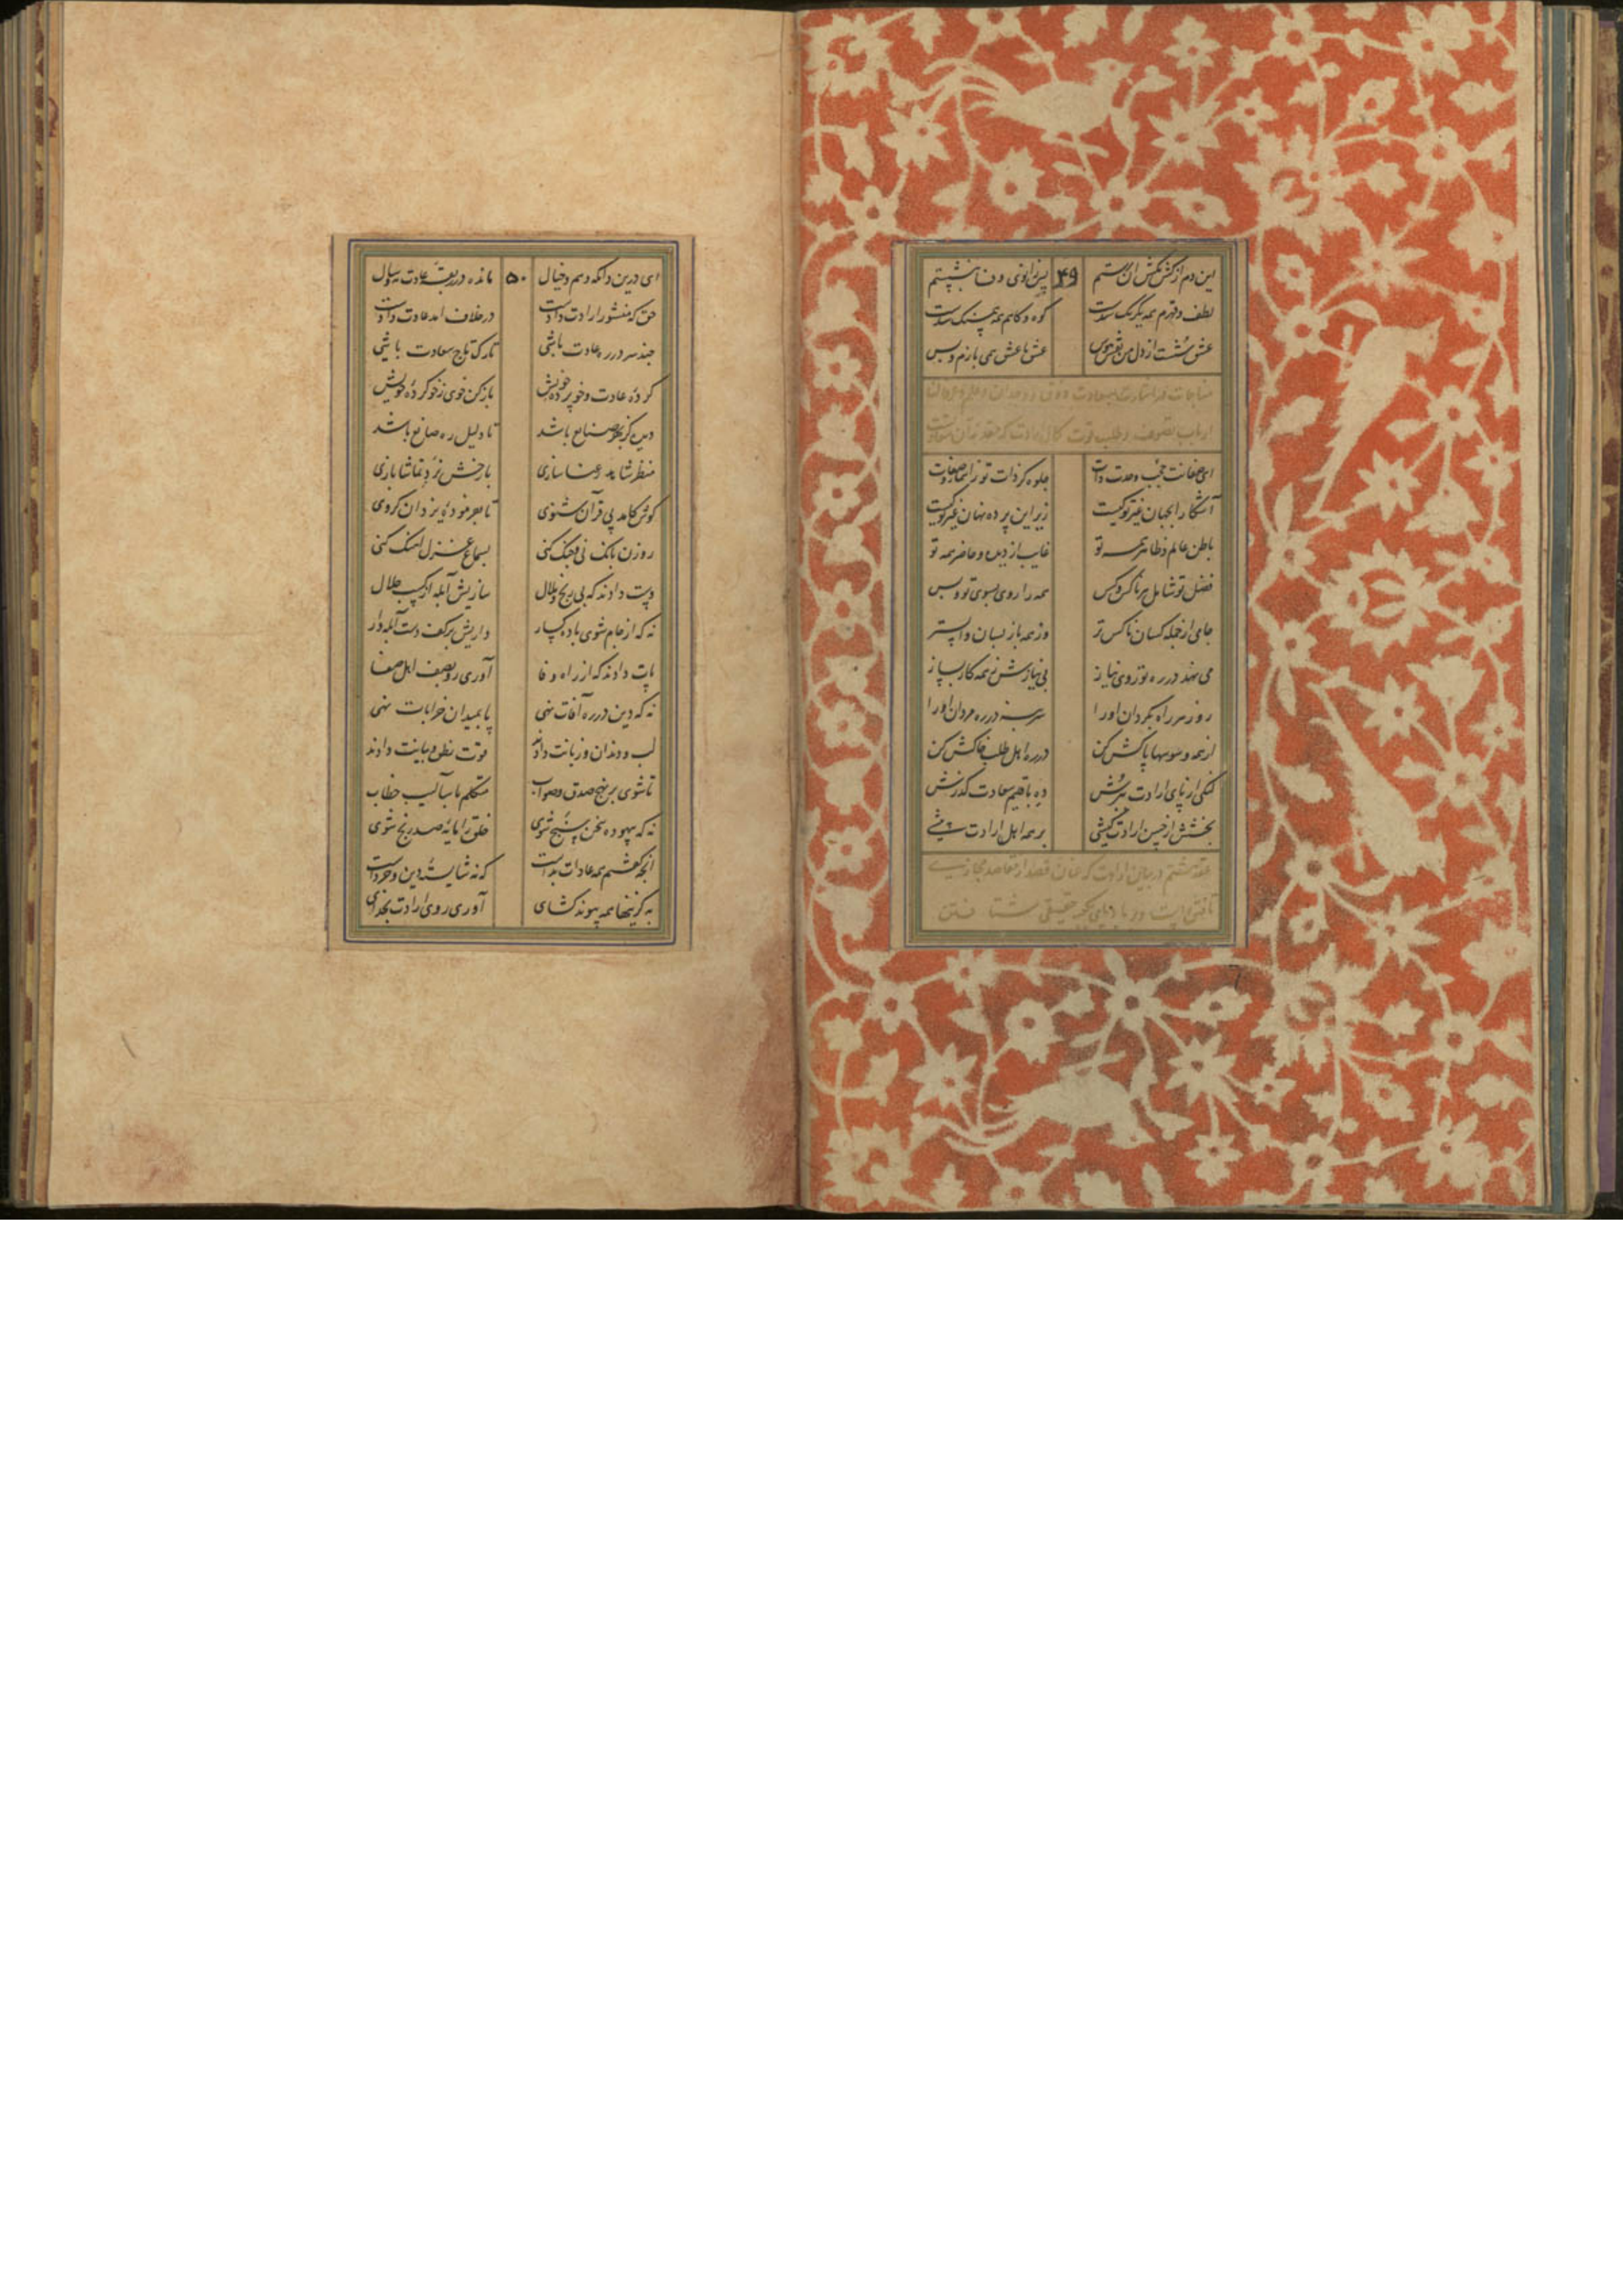 این دم از کشمکش آن رستم ۴۹ پس زانوی وفا بنشستم
لطف و قهرم همه یکرنگ شدست کوه و کاهم همه همسنگ شدست
عشق شست از دل من نقش هوس عشق با عشق همی بازم و بس
مناجات در
ارباب تصوف و طلب قوت
ای صفاتت حجب وحدت ذات جلوه گر ذات تو ز اسما و صفات
آشکارا بجهان غیر تو کیست زیر این پرده نهان غیر تو کیست
باطن عالم و ظاهر همه تو غایب از دیده و حاضر همه تو
فضل تو شامل هر ناکس و کس همه را روی بسوی تو و بس
جامی از جمله کسان ناکس تر وز همه بازپسان واپستر
می نهد در ره تو روی نیاز بی نیازش ز همه کار بساز
روز هر راه بگردان او را سر بنه در ره مردان او را
از همه وسوسها پاکش کن در ره اهل طلب خاکش کن
لنگی از پای ارادت برش ده باقلیم سعادت گذرش
بخشش از حسن ارادت کیشی بر همه اهل ارادت پیشی
عقد هشتم در بیان ارادت که عنان قصد از مقاصد مجازی
تافتن است و حقیقی شتافتن
ای درین دامگه وهم و خیال ۵۰ مانده در ربقه عادت مه و سال
حق که منشور ارادت دادت در خلاف آمد عادت دادت
چند سر در ره عادت باشی تارک تاج سعادت باشی
کرده عادت و خو پرده خویش باز کن خوی ز خو کرده خویش
دیده کز بهر صنایع باشد تا دلیل ره صانع باشد
منظر شاهد رعنا سازی بارخش نرد تماشا بازی
گوش کامد پی قرآن شنوی تا بفرموده یزدان گروی
روزن بانگ نی و چنگ کنی بسماع غزل آهنگ کنی
دست دادند که بی رنج و ملال سازیش آبله از کسب حلال
نه که از جام شوی باده گسار داریش بر کف دست آبله وار
پات دادند که از راه وفا آوری رو بصف اهل صفا
نه که دین در ره آفات نهی پا بمیدان خرابات نهی
لب و دندان و زبانت دادند قوت نطق و بیانت دادند
تا شوی بر نهج صدق و صواب متکلم باسالیب خطاب
نه که بیهوده سخن سنج شوی خلق را مایه صد رنج شوی
آنچه گفتم همه عادات بدست که نه شایسته دین و خردست
به کزینها همه پیوند گشای آوری روی ارادت بخدای